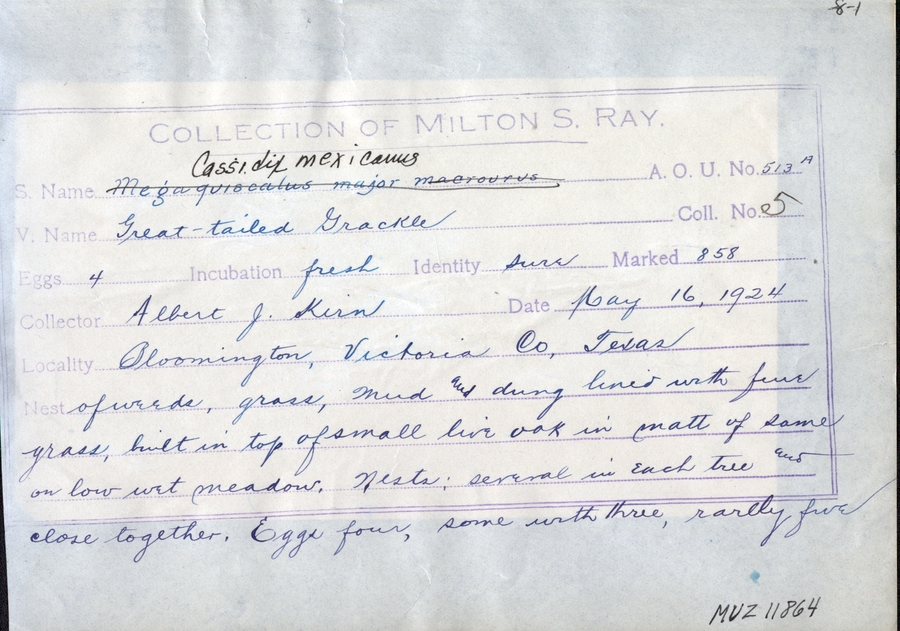 8-1
COLLECTION OF MILTON S. RAY.
Cassidix mexicanus
S. Name Megaquiscalus major macrourus A. O. U. No. 513 A
Coll. No. 5
V. Name Great-tailed Grackle
Eggs 4 Incubation fresh Identity sure Marked 858
Collector Albert J. Kirn Date May 16, 1924
Locality Bloomington, Victoria Co, Texas
Nest of weeds, grass, mud and dung lined with fine
grass, built in top of small live oak in matt of same
on low wet meadow. Nests; several in each tree and
close together. Eggs four, some with three, rarely five
MVZ 11864